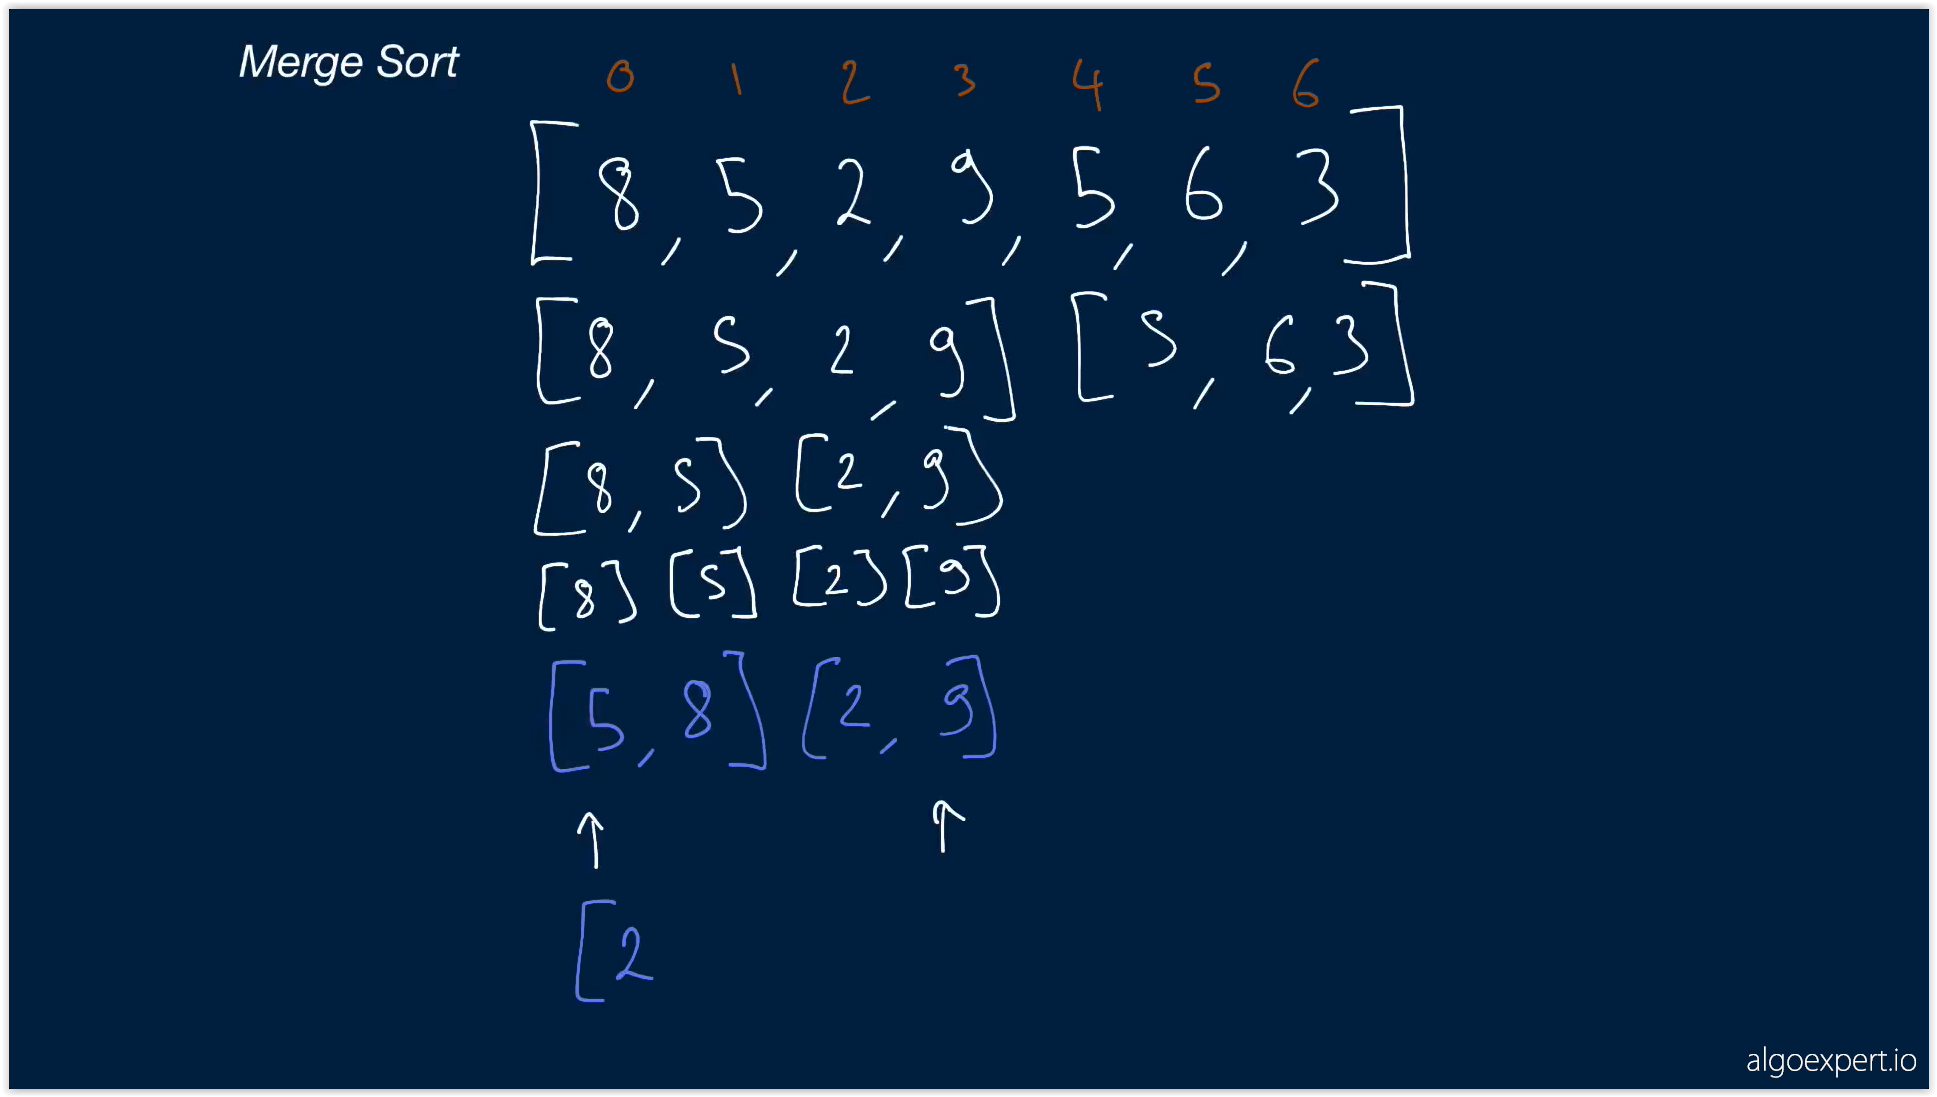 Merge Sort
0 1 2 3 4 5 6
[8, 5, 2, 9, 5, 6, 3]
[8, 5, 2, 9] [5, 6, 3]
[8, 5] [2, 9]
[8] [5] [2] [9]
[5, 8] [2, 9]
↑ ↑
[2
algoexpert.io